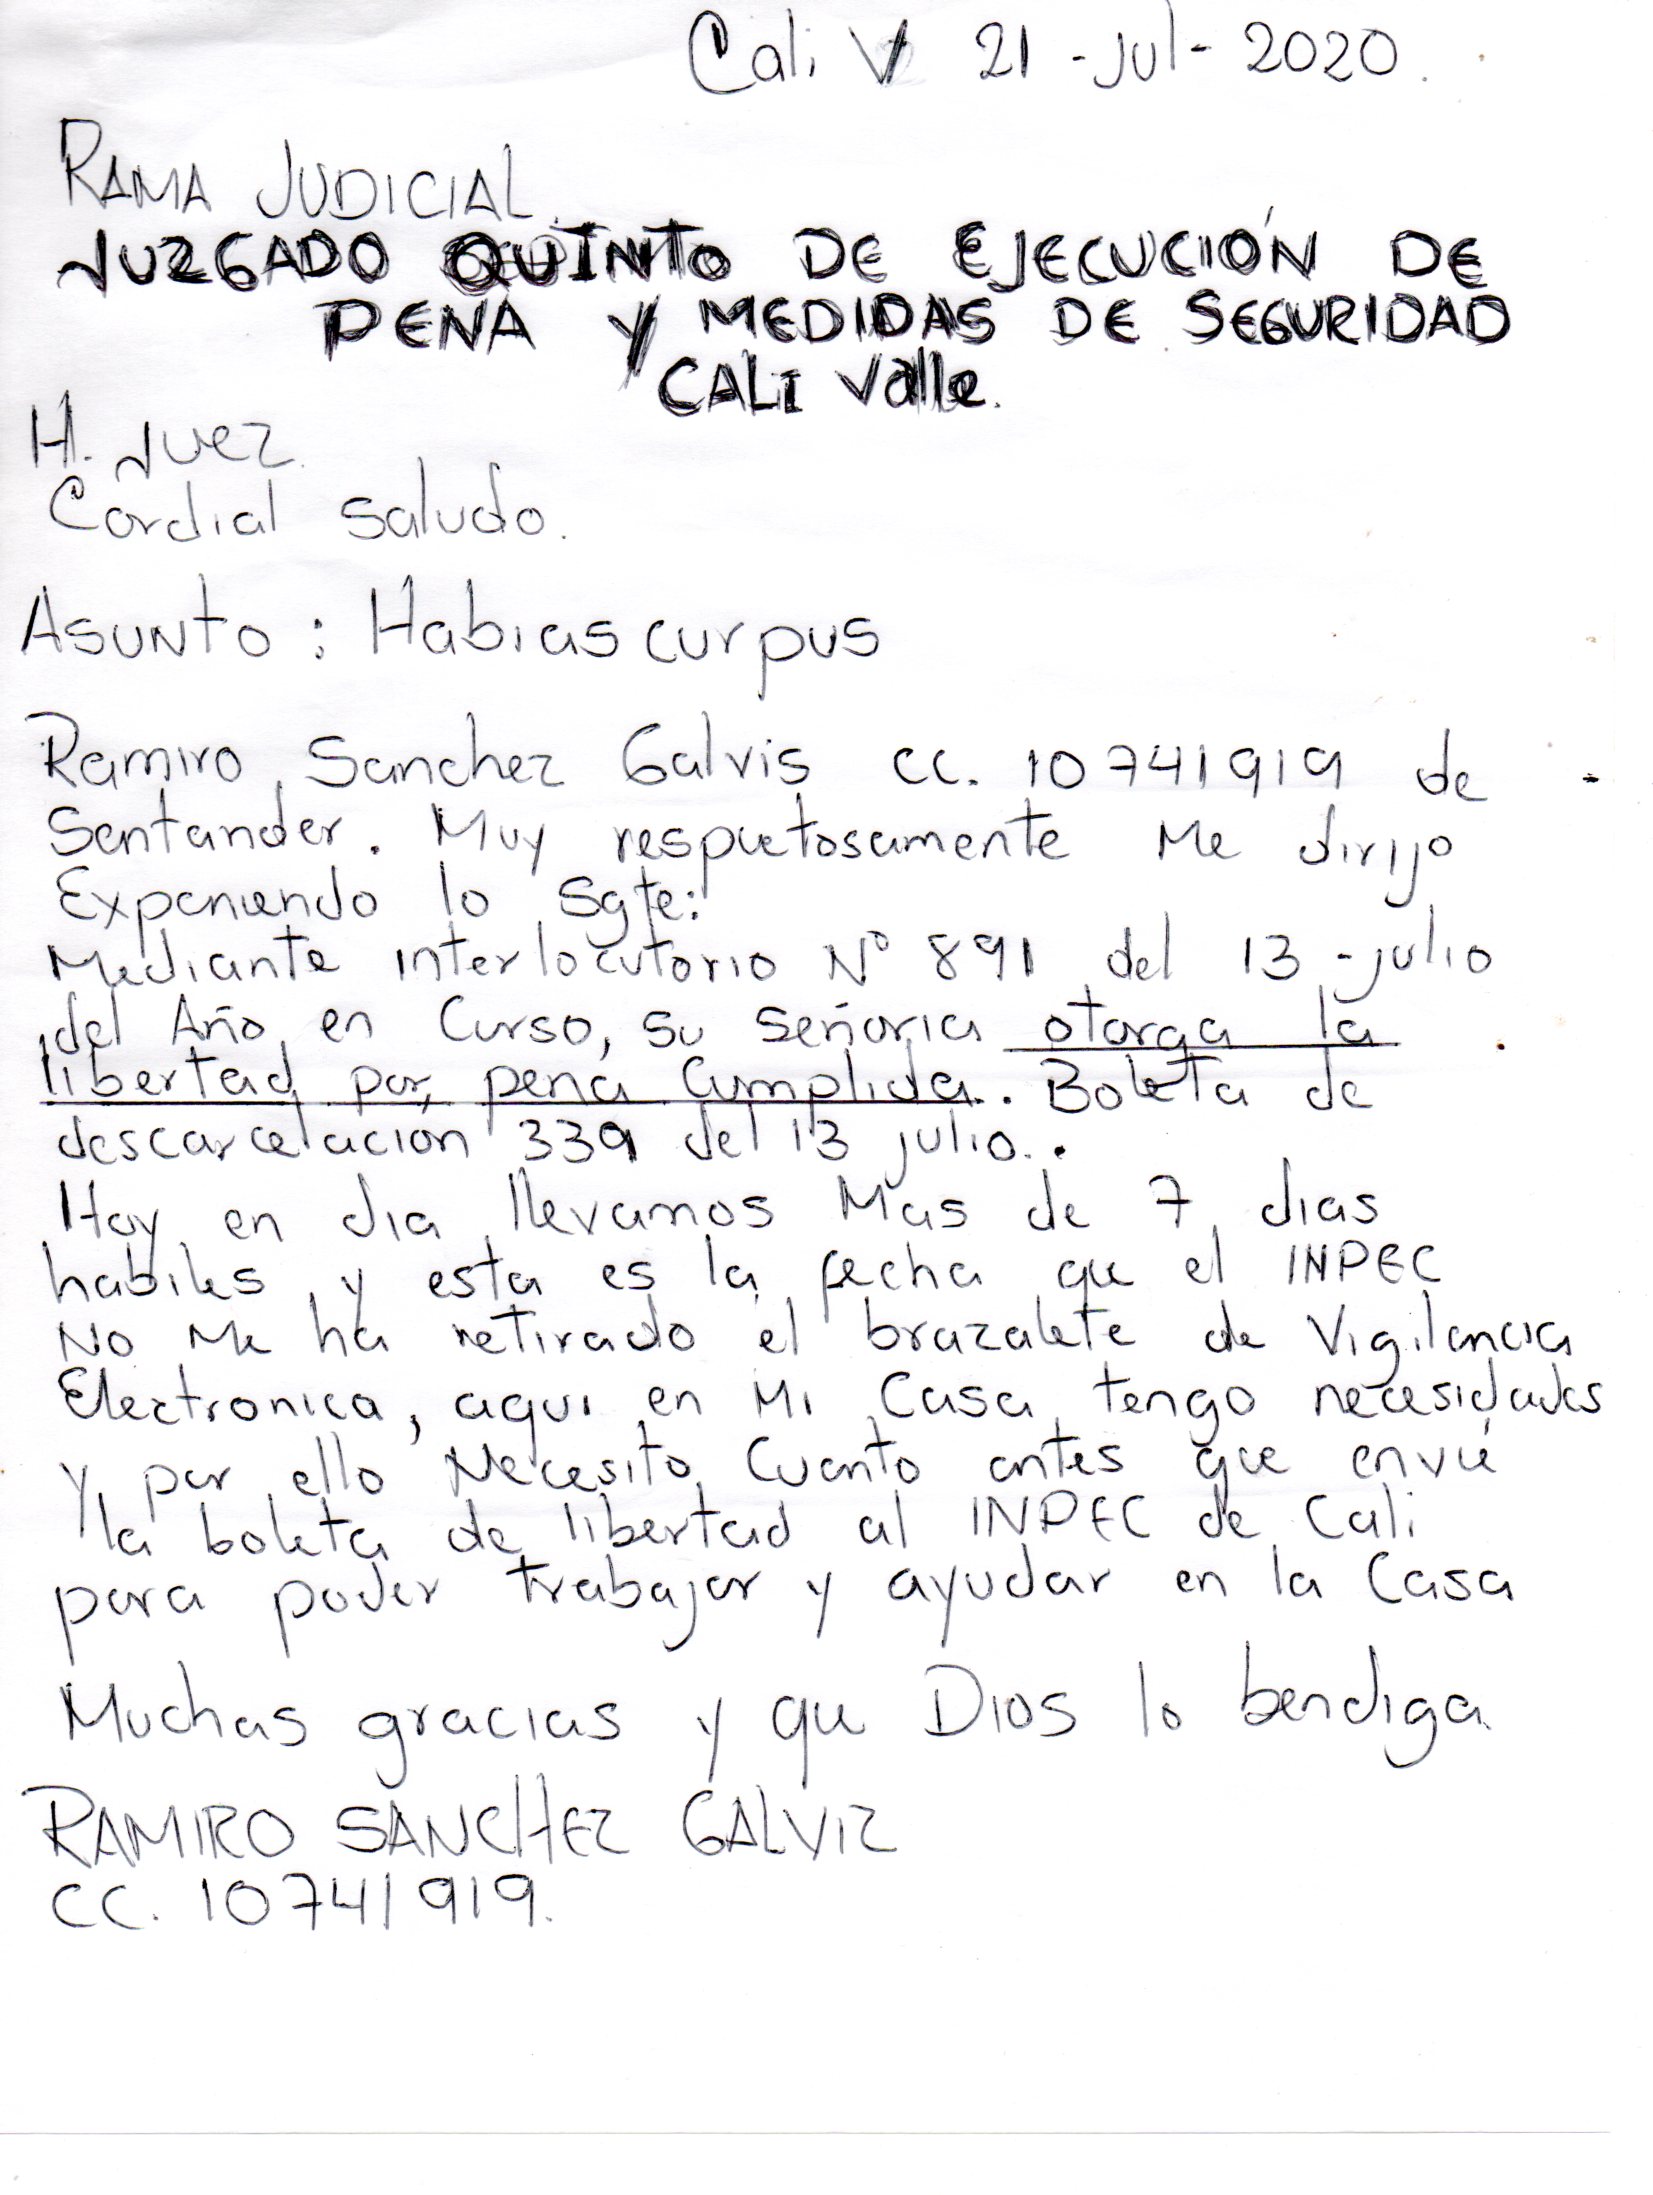 Cali V 21 - Jul - 2020.
RAMA JUDICIAL.
JUZGADO QUINTO DE EJECUCIÓN DE
PENA Y MEDIDAS DE SEGURIDAD
CALI Valle.
H. Juez.
Cordial saludo.
Asunto : Habias curpus
Ramiro Sanchez Galvis cc. 10741919 de
Santander. Muy respetosamente Me dirijo
Exponiendo lo Sgte:
Mediante interlocutorio N° 891 del 13 - julio
del Año en Curso, su señoria otorga la
libertad por pena Cumplida. Boleta de
descarcelacion 339 del 13 julio..
Hoy en dia llevamos Mas de 7 dias
habiles y esta es la fecha que el INPEC
No Me ha retirado el brazalete de Vigilancia
Electronica, aqui en Mi Casa tengo necesidades
y por ello Necesito Cuanto antes que envie
la boleta de libertad al INPEC de Cali
para poder trabajar y ayudar en la Casa
Muchas gracias y que Dios lo bendiga.
RAMIRO SANCHEZ GALVIZ
CC. 10741919.